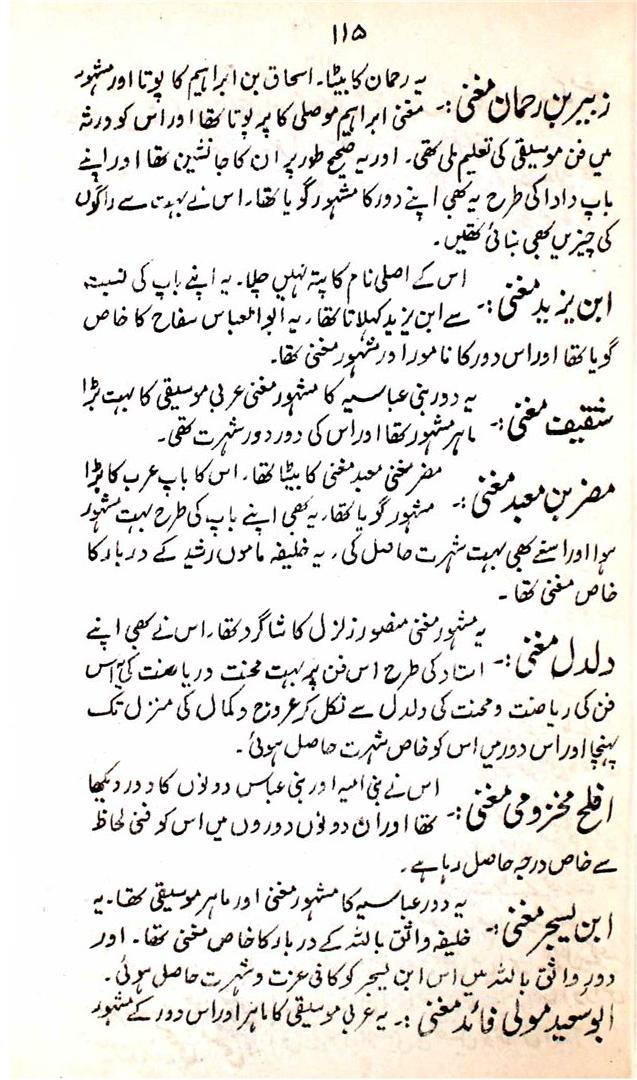 ۱۱۵
زبیر بن رحمان مغنی :۔ یہ رحمان کا بیٹا۔ اسحاق بن ابراہیم کا پوتا اور مشہور
مغنی ابراہیم موصلی کا پرپوتا تھا اور اس کو ورثہ
میں فن موسیقی کی تعلیم ملی تھی۔ اور یہ صحیح طور پر ان کا جانشین تھا اور اپنے
باپ دادا کی طرح یہ بھی اپنے دور کا مشہور گویا تھا۔ اس نے بہت سے راگوں
کی چیزیں بھی بنائی تھیں۔
ابن یزید مغنی :۔ اس کے اصلی نام کا پتہ نہیں چلا۔ یہ اپنے باپ کی نسبت
سے ابن یزید کہلاتا تھا۔ یہ ابوالعباس سفاح کا خاص
گویا تھا اور اس دور کا نامور اور مشہور مغنی تھا۔
ثقیف مغنی :۔ یہ دور بنی عباسیہ کا مشہور مغنی عربی موسیقی کا بہت بڑا
ماہر مشہور تھا اور اس کی دور دور شہرت تھی۔
مضر بن معبد مغنی :۔ مضر مغنی معبد مغنی کا بیٹا تھا۔ اس کا باپ عرب کا بڑا
مشہور گویا تھا۔ یہ بھی اپنے باپ کی طرح بہت مشہور
ہوا اور اسنے بھی بہت شہرت حاصل کی۔ یہ خلیفہ ماموں رشید کے دربار کا
خاص مغنی تھا۔
دلدل مغنی :۔ یہ مشہور مغنی منصور زلزل کا شاگرد تھا۔ اس نے بھی اپنے
استاد کی طرح اس فن پر بہت محنت و ریاضت کی۔ اس
فن کی ریاضت و محنت کی دلدل سے نکل کر عروج و کمال کی منزل تک
پہنچا اور اس دور میں اس کو خاص شہرت حاصل ہوئی۔
افلح مخزومی مغنی :۔ اس نے بنی امیہ اور بنی عباس دونوں کا دور دیکھا
تھا اور ان دونوں دوروں میں اس کو فنی لحاظ
سے خاص درجہ حاصل رہا ہے۔
ابن یسجر مغنی :۔ یہ دور عباسیہ کا مشہور مغنی اور ماہر موسیقی تھا۔ یہ
خلیفہ واثق باللہ کے دربار کا خاص مغنی تھا۔ اور
دور واثق باللہ میں اس ابن یسجر کو کافی عزت و شہرت حاصل ہوئی۔
ابو سعید مولیٰ فائد مغنی :۔ یہ عربی موسیقی کا ماہر اور اس دور کے مشہور